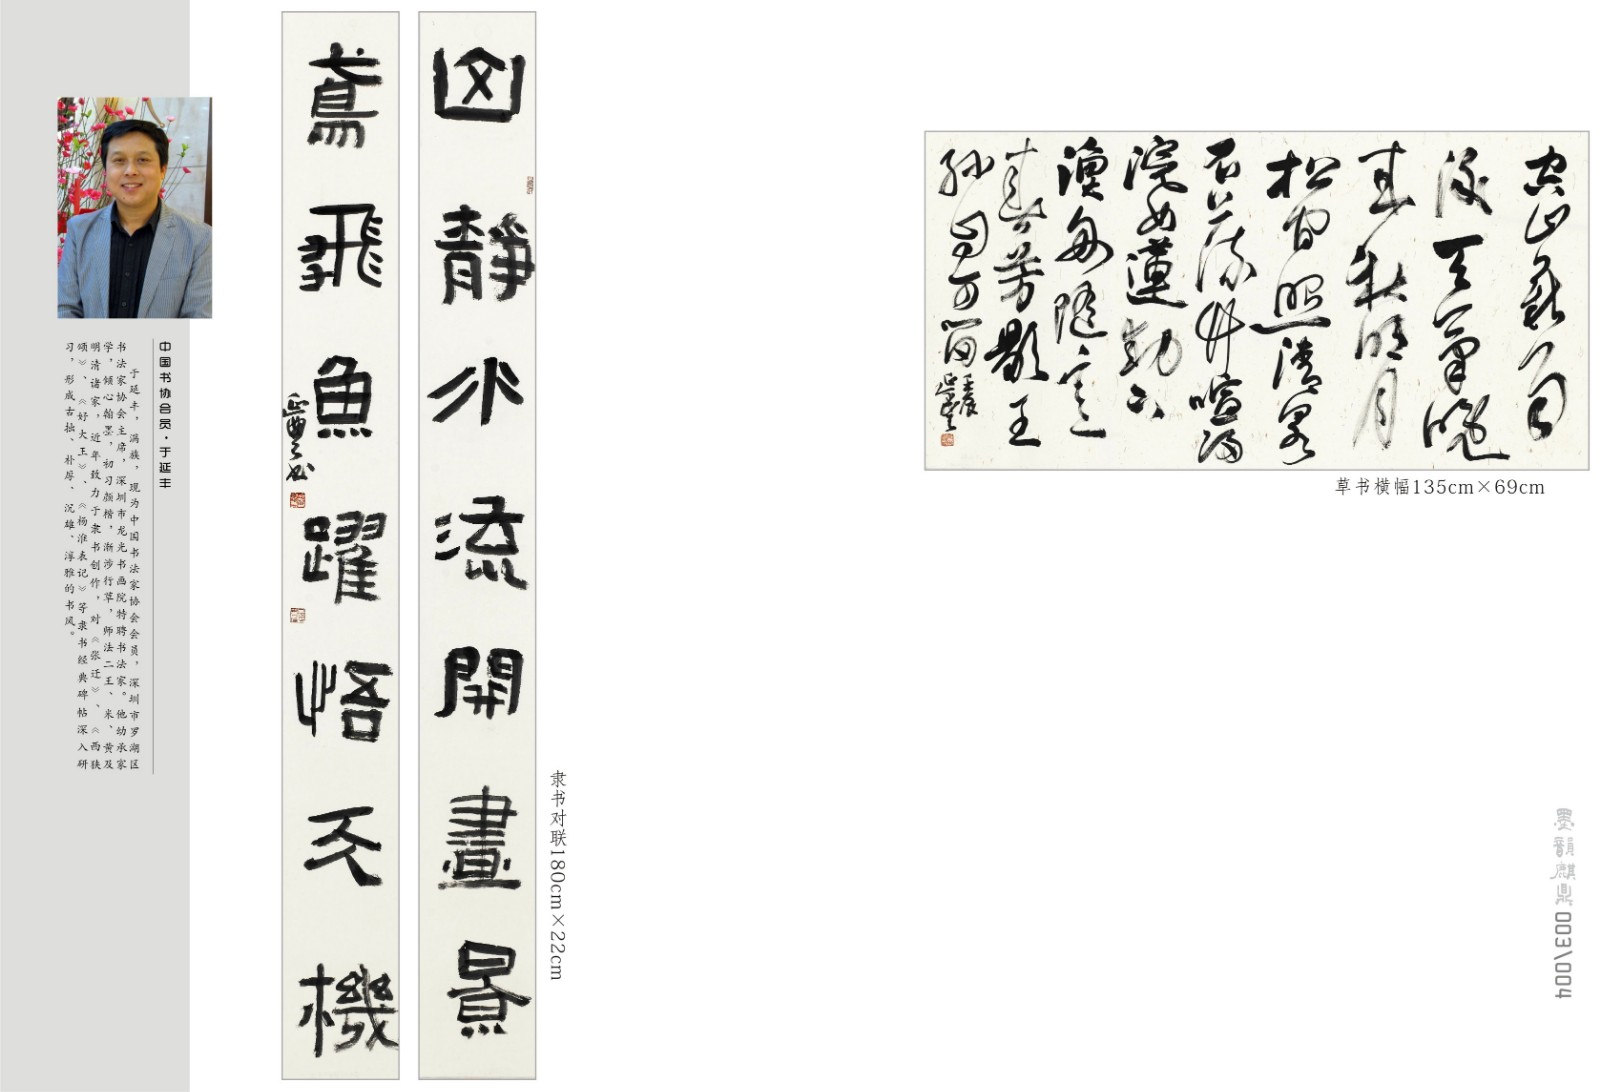 中国书协会员·于延丰
于延丰，满族，现为中国书法家协会会员，深圳市罗湖区
书法家协会主席，深圳市龙光书画院特聘书法家。他幼承家
学，倾心翰墨，初习颜楷，渐涉行草，师法二王、米、黄及
明清诸家，近年致力于隶书创作，对《张迁》、《西狭
颂》、《好大王》、《杨淮表记》等隶书经典碑帖深入研
习，形成古拙、朴厚、沉雄、淳雅的书风。
靜水流開畫景
鳶飛魚躍悟天機
延豐書
隶书对联180cm×22cm
空山新雨
後天氣晚
來秋明月
松间照清泉
石上流竹喧歸
浣女蓮動下
漁舟隨意
春芳歇王
孙自可留
壬辰
延豐書
草书横幅135cm×69cm
墨韻麒鼎 003\004